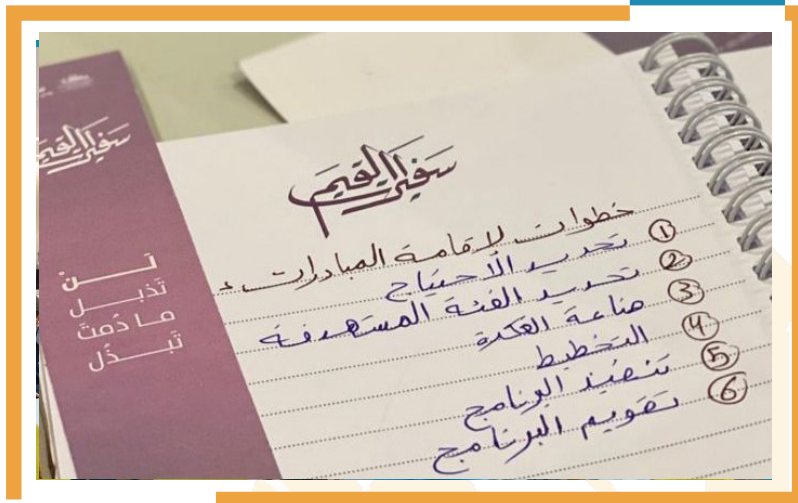 سفير القيم
لن
تذبل
ما دمت
تبذل
سفير القيم
خطوات لإقامة المبادرات :
① تحديد الأحتياج
② تحديد الفئة المستهدفة
③ صناعة الفكرة
④ التخطيط
⑤ تنفيذ البرنامج
⑥ تقويم البرنامج